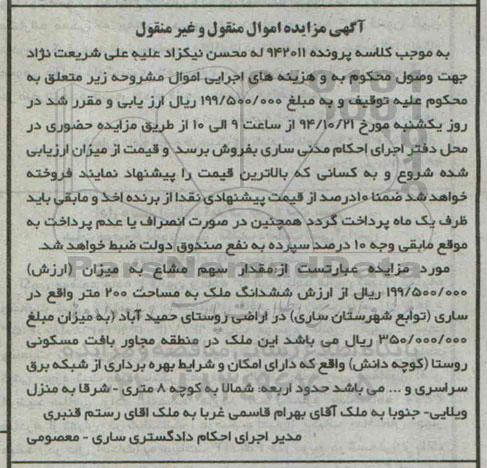 آگهی مزایده اموال منقول و غیر منقول
به موجب کلاسه پرونده ۹۴۲۰۱۱ له محسن نیکزاد علیه علی شریعت نژاد
جهت وصول محکوم به و هزینه های اجرایی اموال مشروحه زیر متعلق به
محکوم علیه توقیف و به مبلغ ۱۹۹/۵۰۰/۰۰۰ ریال ارزیابی و مقرر شد در
روز یکشنبه مورخ ۹۴/۱۰/۲۱ از ساعت ۹ الی ۱۰ از طریق مزایده حضوری در
محل دفتر اجرای احکام مدنی ساری بفروش برسد و قیمت از میزان ارزیابی
شده شروع و به کسانی که بالاترین قیمت را پیشنهاد نمایند فروخته
خواهد شد ضمنا ۱۰درصد از قیمت پیشنهادی نقدا از برنده اخذ و مابقی باید
ظرف یک ماه پرداخت گردد همچنین در صورت انصراف یا عدم پرداخت به
موقع مابقی وجه ۱۰ درصد سپرده به نفع صندوق دولت ضبط خواهد شد.
مورد مزایده عبارتست از:مقدار سهم مشاع به میزان (ارزش)
۱۹۹/۵۰۰/۰۰۰ ریال از ارزش ششدانگ ملک به مساحت ۲۰۰ متر واقع در
ساری (توابع شهرستان ساری) در اراضی روستای حمید آباد (به میزان مبلغ
۳۵۰/۰۰۰/۰۰۰ ریال می باشد این ملک در منطقه مجاور بافت مسکونی
روستا (کوچه دانش) واقع که دارای امکان و شرایط بهره برداری از شبکه برق
سراسری و ... می باشد حدود اربعه: شمالا به کوچه ۸ متری - شرقا به منزل
ویلایی- جنوبا به ملک آقای بهرام قاسمی غربا به ملک اقای رستم قنبری
مدیر اجرای احکام دادگستری ساری - معصومی
ParsNamadData